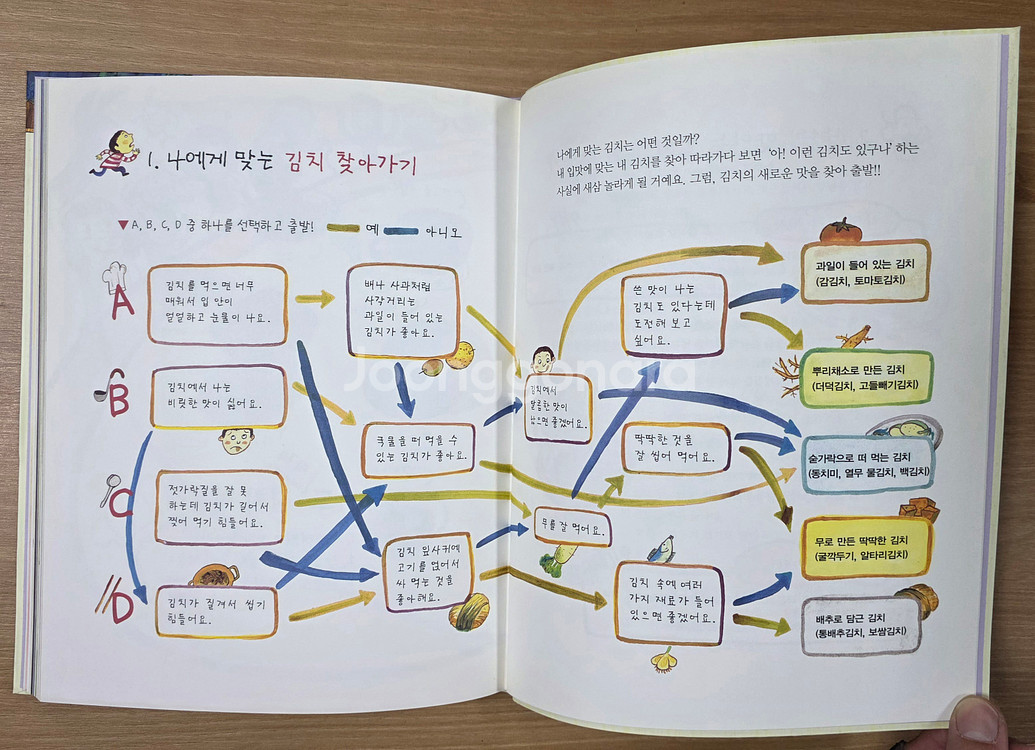 1. 나에게 맞는 김치 찾아가기
▼A, B, C, D 중 하나를 선택하고 출발!
예
아니오
A
김치를 먹으면 너무
매워서 입 안이
얼얼하고 눈물이 나요.
배나 사과처럼
사각거리는
과일이 들어 있는
김치가 좋아요.
B
김치에서 나는
비릿한 맛이 싫어요.
국물을 떠 먹을 수
있는 김치가 좋아요.
C
젓가락질을 잘 못
하는데 김치가 길어서
찢어 먹기 힘들어요.
김치 잎사귀에
고기를 얹어서
싸 먹는 것을
좋아해요.
D
김치가 질겨서 씹기
힘들어요.
나에게 맞는 김치는 어떤 것일까?
내 입맛에 맞는 내 김치를 찾아 따라가다 보면 ‘아! 이런 김치도 있구나’ 하는
사실에 새삼 놀라게 될 거예요. 그럼, 김치의 새로운 맛을 찾아 출발!!
쓴 맛이 나는
김치도 있다는데
도전해 보고
싶어요.
김치에서
달콤한 맛이
났으면 좋겠어요.
딱딱한 것을
잘 씹어 먹어요.
무를 잘 먹어요.
김치 속에 여러
가지 재료가 들어
있으면 좋겠어요.
과일이 들어 있는 김치
(감김치, 토마토김치)
뿌리채소로 만든 김치
(더덕김치, 고들빼기김치)
숟가락으로 떠 먹는 김치
(동치미, 열무 물김치, 백김치)
무로 만든 딱딱한 김치
(굴깍두기, 알타리김치)
배추로 담근 김치
(통배추김치, 보쌈김치)
Joonggonara